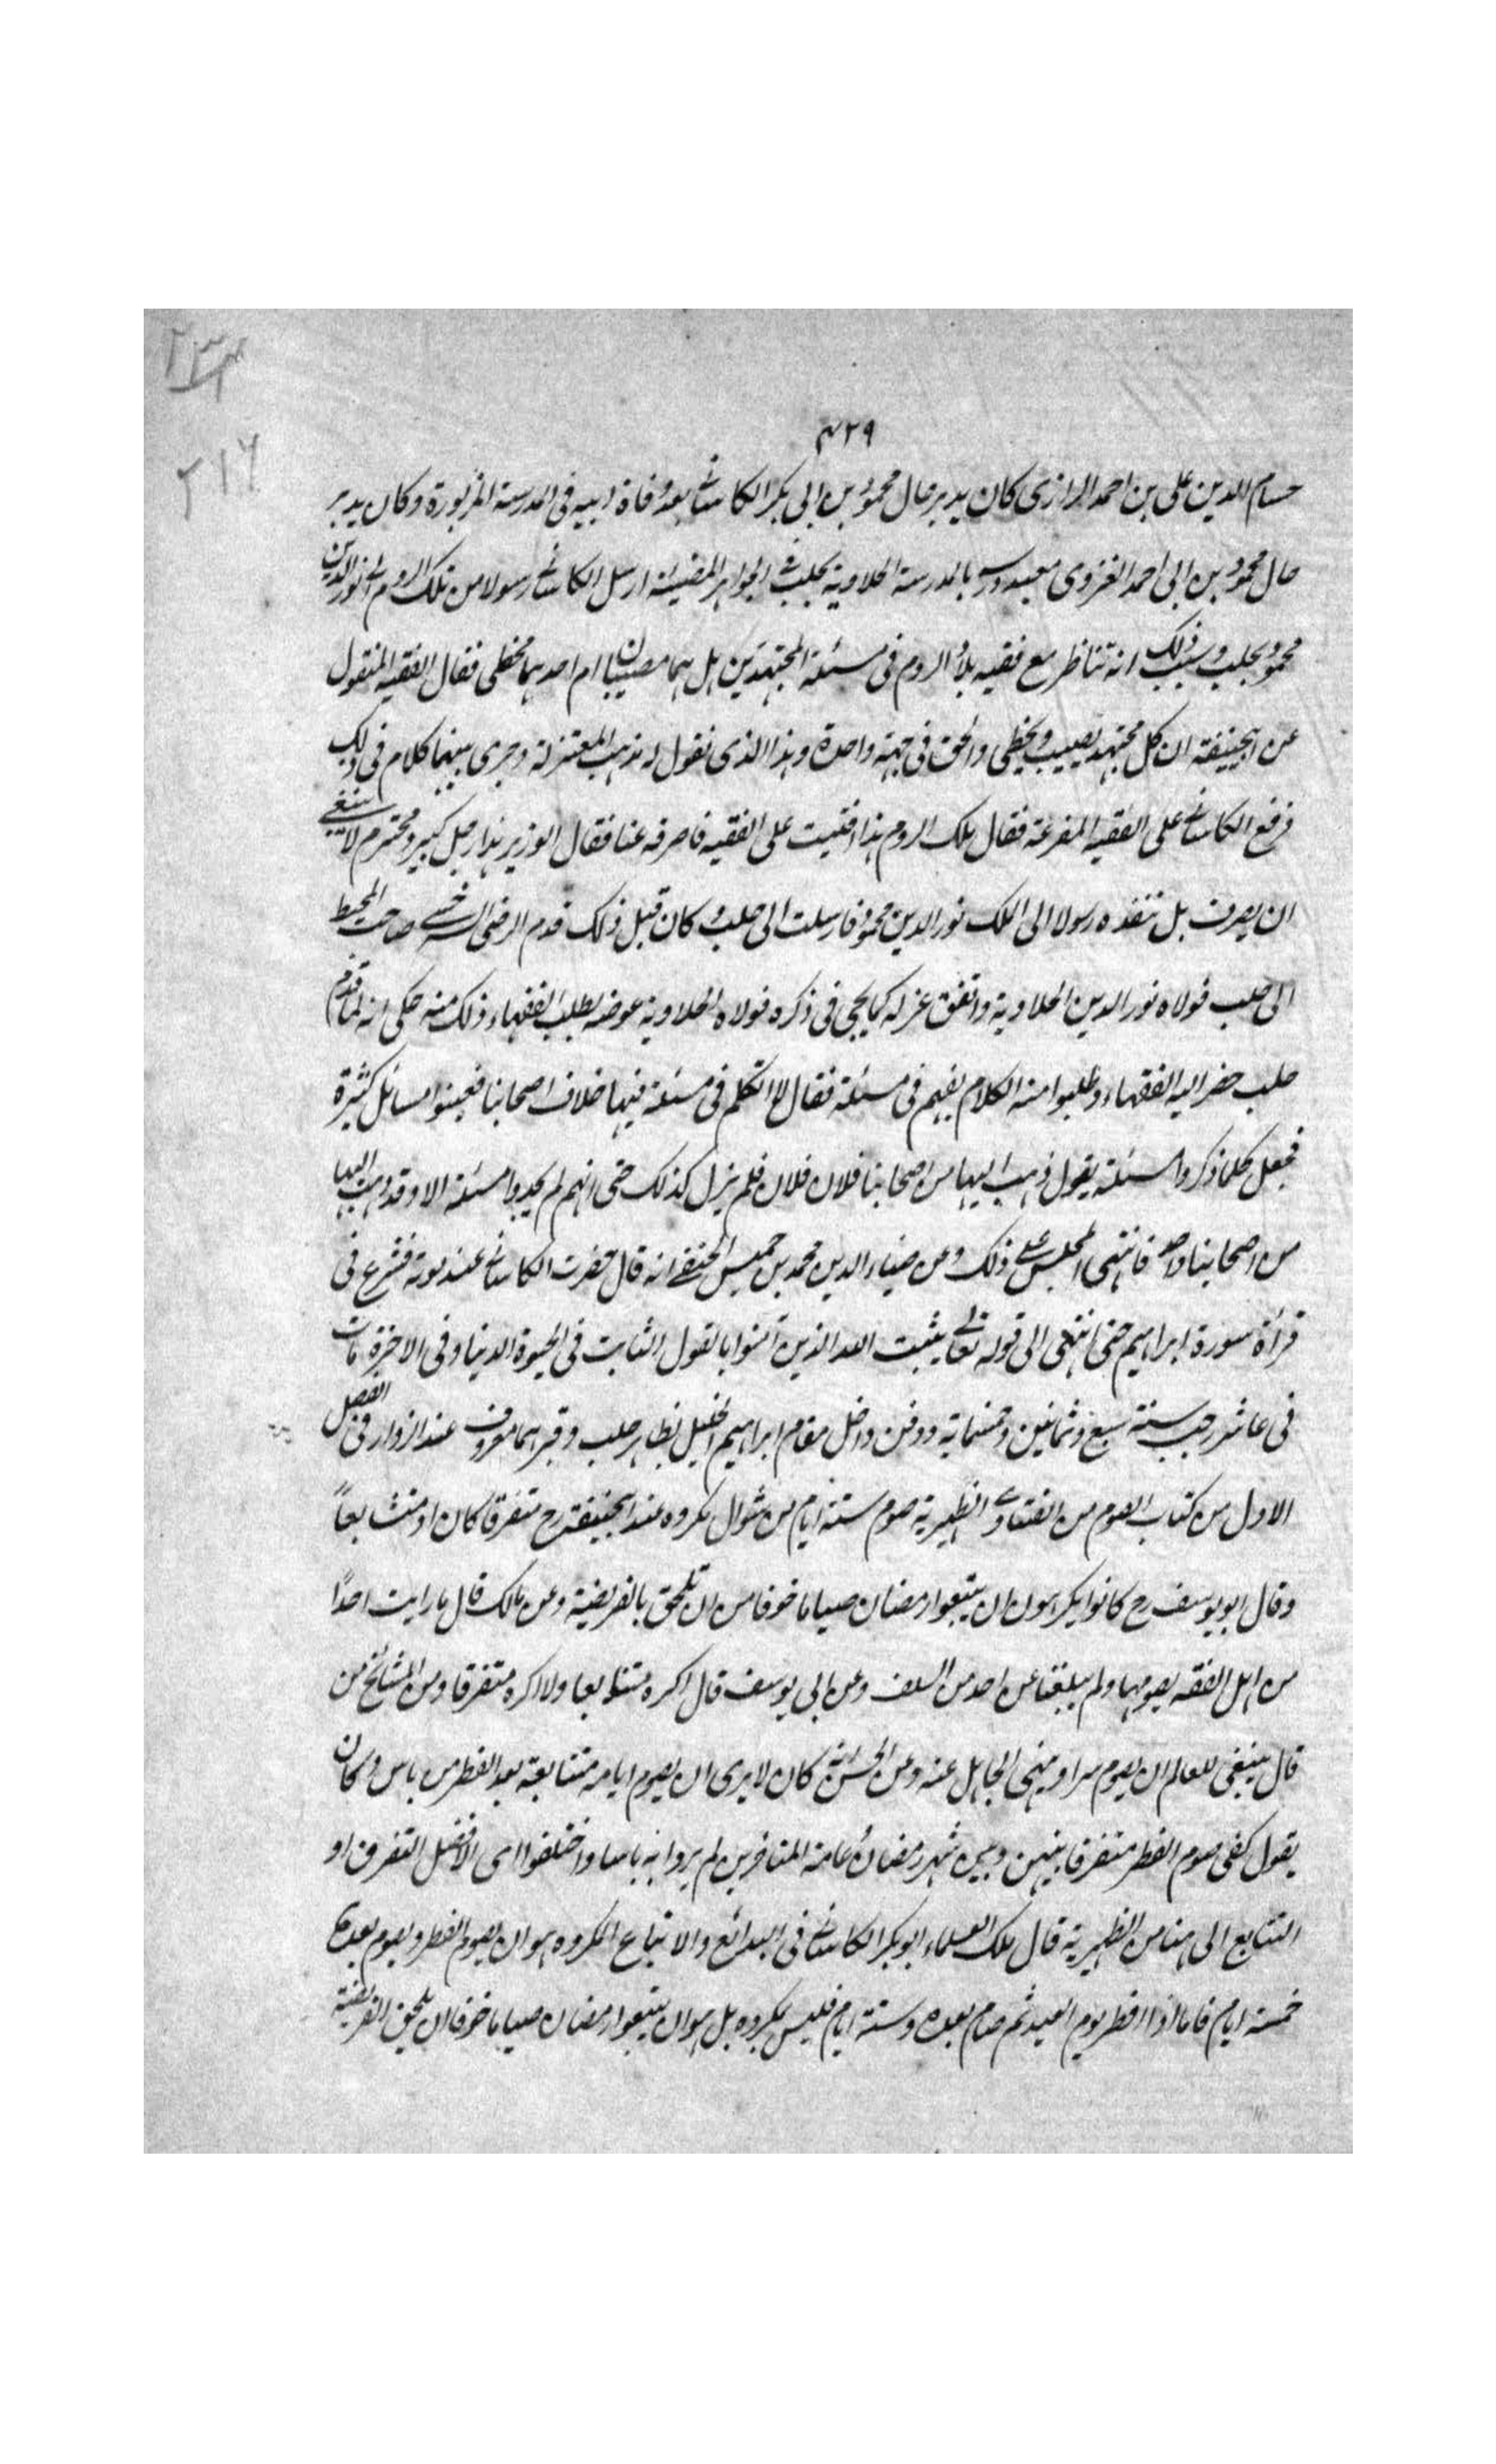 ٢٣٤
٢١٦
٤٢٩
حسام الدين على بن احمد الرازى كان يدبر حال محمود بن ابى بكر الكاشانى بعد وفاة ابيه فى المدرسة المزبورة وكان يدبر
حال محمود بن ابى احمد الغزنوى معيد درسه بالمدرسة الحلاوية بحلب فى الجواهر المضيئة ارسل الكاشانى رسولا من ملك الروم الى نور الدين
محمود بحلب وسبب ذلك انه تناظر مع فقيه بلاد الروم فى مسئلة المجتهدين هل هما مصيبان ام احدهما مخطى فقال الفقيه المنقول
عن ابيحنيفة ان كل مجتهد يصيب ويخطى والحق فى جهة واحدة وهذا الذى نقول له مذهب المعتزلة وجرى بينهما كلام فى ذلك
فرفع الكاشانى على الفقيه المقرعة فقال ملك الروم هذا افتيت على الفقيه فاصرفه عنا فقال الوزير هذا رجل كبير ومحترم لا ينبغى
ان يصرف بل تنفذه رسولا الى الملك نور الدين محمود فارسلت الى حلب وكان قبل ذلك قدم الرضى السرخسى صاحب المحيط
الى حلب فولاه نور الدين الحلاوية واتفق عزله كما يجى فى ذكره فولاه الحلاوية عوضه بطلب الفقهاء ذلك منه حكى انه لما قدم
حلب حضر اليه الفقهاء وطلبوا منه الكلام معهم فى مسئلة فقال لا اتكلم فى مسئلة فيها خلاف اصحابنا فعينوا مسائل كثيرة
فجعل كلما ذكروا مسئلة يقول ذهب اليها من اصحابنا فلان فلان فلم يزل كذلك حتى انهم لم يجدوا مسئلة الا وقد ذهب اليها
من اصحابنا واحد فانتهى المجلس على ذلك وعن ضياء الدين محمد بن خميس الحنفى انه قال حضرت الكاشانى عند موته فشرع فى
قرأة سورة ابراهيم حتى انتهى الى قوله تعالى يثبت الله الذين آمنوا بالقول الثابت فى الحيوة الدنيا وفى الاخرة مات
فى عاشر رجب سنة سبع وثمانين وخمسماية ودفن داخل مقام ابراهيم الخليل بظاهر حلب وقبرهما معروف عند الزوار فى الفصل
الاول من كتاب الصوم من الفتاوى الظهيرية صوم ستة ايام من شوال مكروه عند ابيحنيفة رح متفرقا كان او متتابعاً
وقال ابو يوسف رح كانوا يكرهون ان يتبعوا رمضان صياما خوفا من ان تلحق بالفريضة وعن مالك قال ما رايت احدًا
من اهل الفقه يصومها ولم يبلغنا عن احد من السلف وعن ابى يوسف قال اكره متتابعا ولا اكره متفرقا ومن المشائخ من
قال ينبغى للعالم ان يصوم سرا وينهى الجاهل عنه وعن الحسن انه كان لا يرى ان يصوم ايامه متتابعة بعد الفطر من باس وكان
يقول كفى صوم الفطر متفرقا بينهن وبين شهر رمضان عامة المتاخرين لم يروا به باسا واختلفوا اى الافضل التفرق او
التتابع الى هنا من الظهيرية قال ملك العلماء ابو بكر الكاشانى فى البدائع والاتباع المكروه هو ان يصوم الفطر ويصوم بعده
خمسة ايام فاما اذا افطر يوم العيد ثم صام بعده ستة ايام فليس بمكروه بل هو ان يتبعوا رمضان صياما خوفا ان يلحق الفريضة